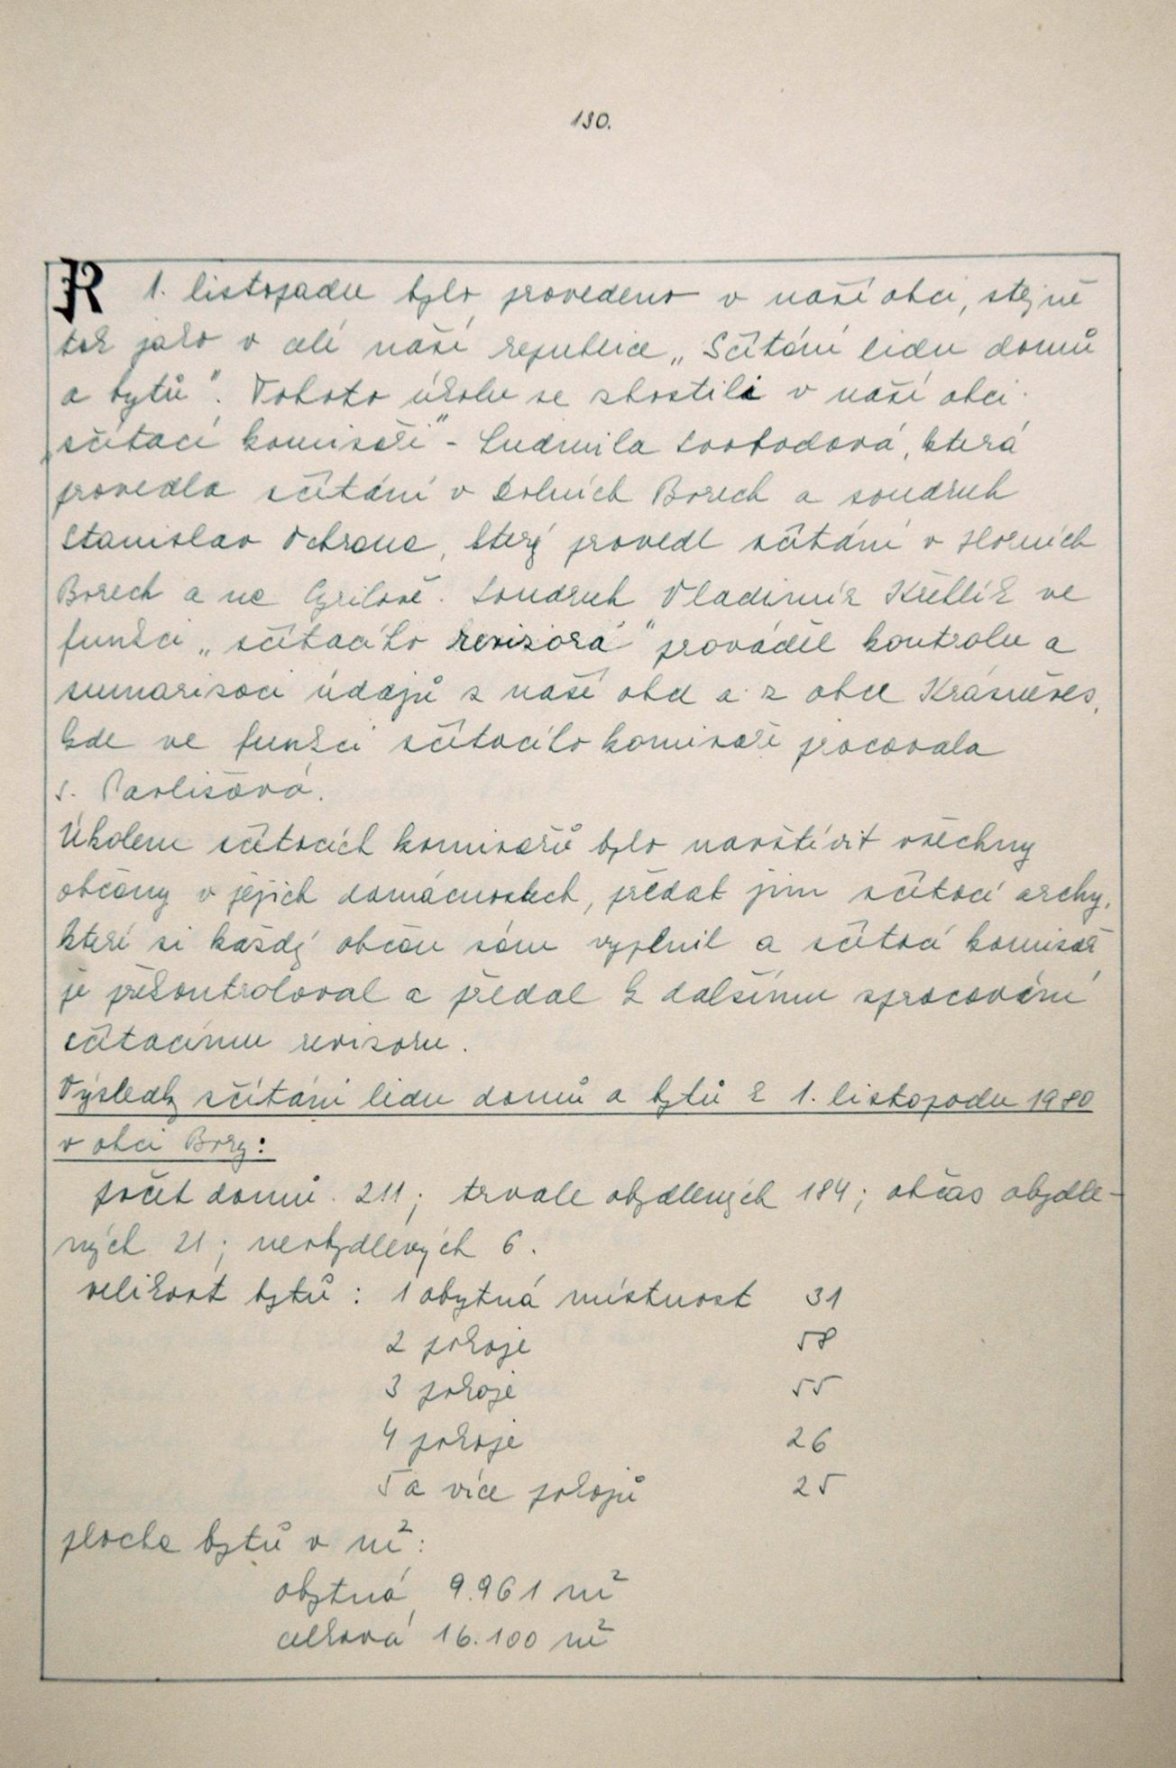 130.
K 1. listopadu bylo provedeno v naší obci, stejně
tak jako v celé naší republice „Sčítání lidu domů
a bytů". Tohoto úkolu se zhostili v naší obci
„sčítací komisaři" - Ludmila Svobodová, která
provedla sčítání v Dolních Borech a soudruh
Stanislav Ochrana, který provedl sčítání v Horních
Borech a na Cyrilově. Soudruh Vladimír Křetlík ve
funkci „sčítacího revizora" prováděl kontrolu a
sumarisaci údajů z naší obce a z obce Krásněves,
kde ve funkci sčítacího komisaře pracovala
s. Pavlišová.
Úkolem sčítacích komisařů bylo navštívit všechny
občany v jejich domácnostech, předat jim sčítací archy,
které si každý občan sám vyplnil a sčítací komisař
je překontroloval a předal k dalšímu zpracování
sčítacímu revisoru.
Výsledky sčítání lidu domů a bytů k 1. listopadu 1980
v obci Bory:
počet domů. 211; trvale obydlených 184; občas obydle-
ných 21; neobydlených 6.
velikost bytů: 1 obytná místnost 31
2 pokoje 58
3 pokoje 55
4 pokoje 26
5 a více pokojů 25
plocha bytů v m²:
obytná 9.961 m²
celková 16.100 m²